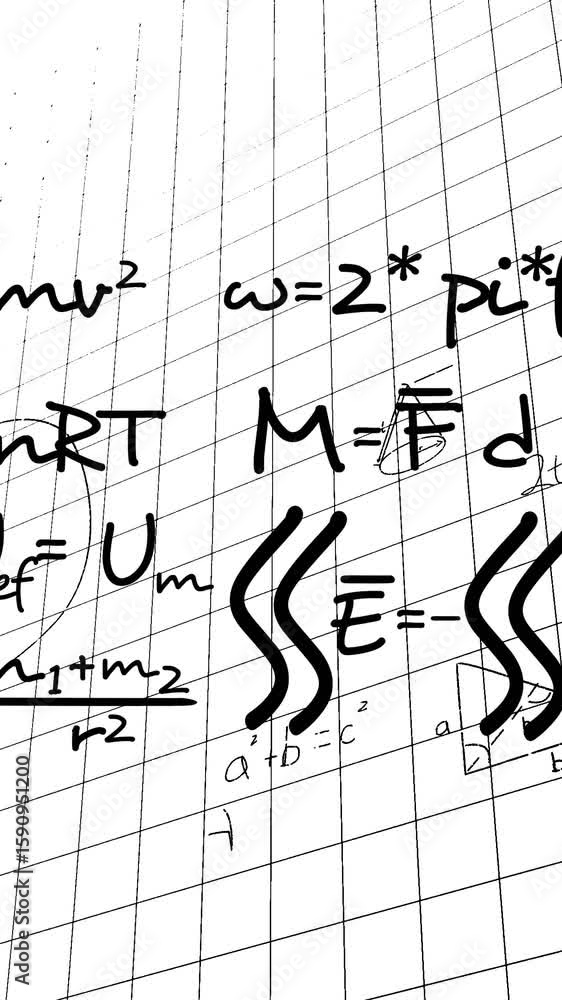 mv² ω=2* pi*f
nRT M=F̅ d
ef = Um ∬ E̅ = - ∬
m1+m2
r2
a²+b²=c²
a b
Adobe Stock | #1590951200